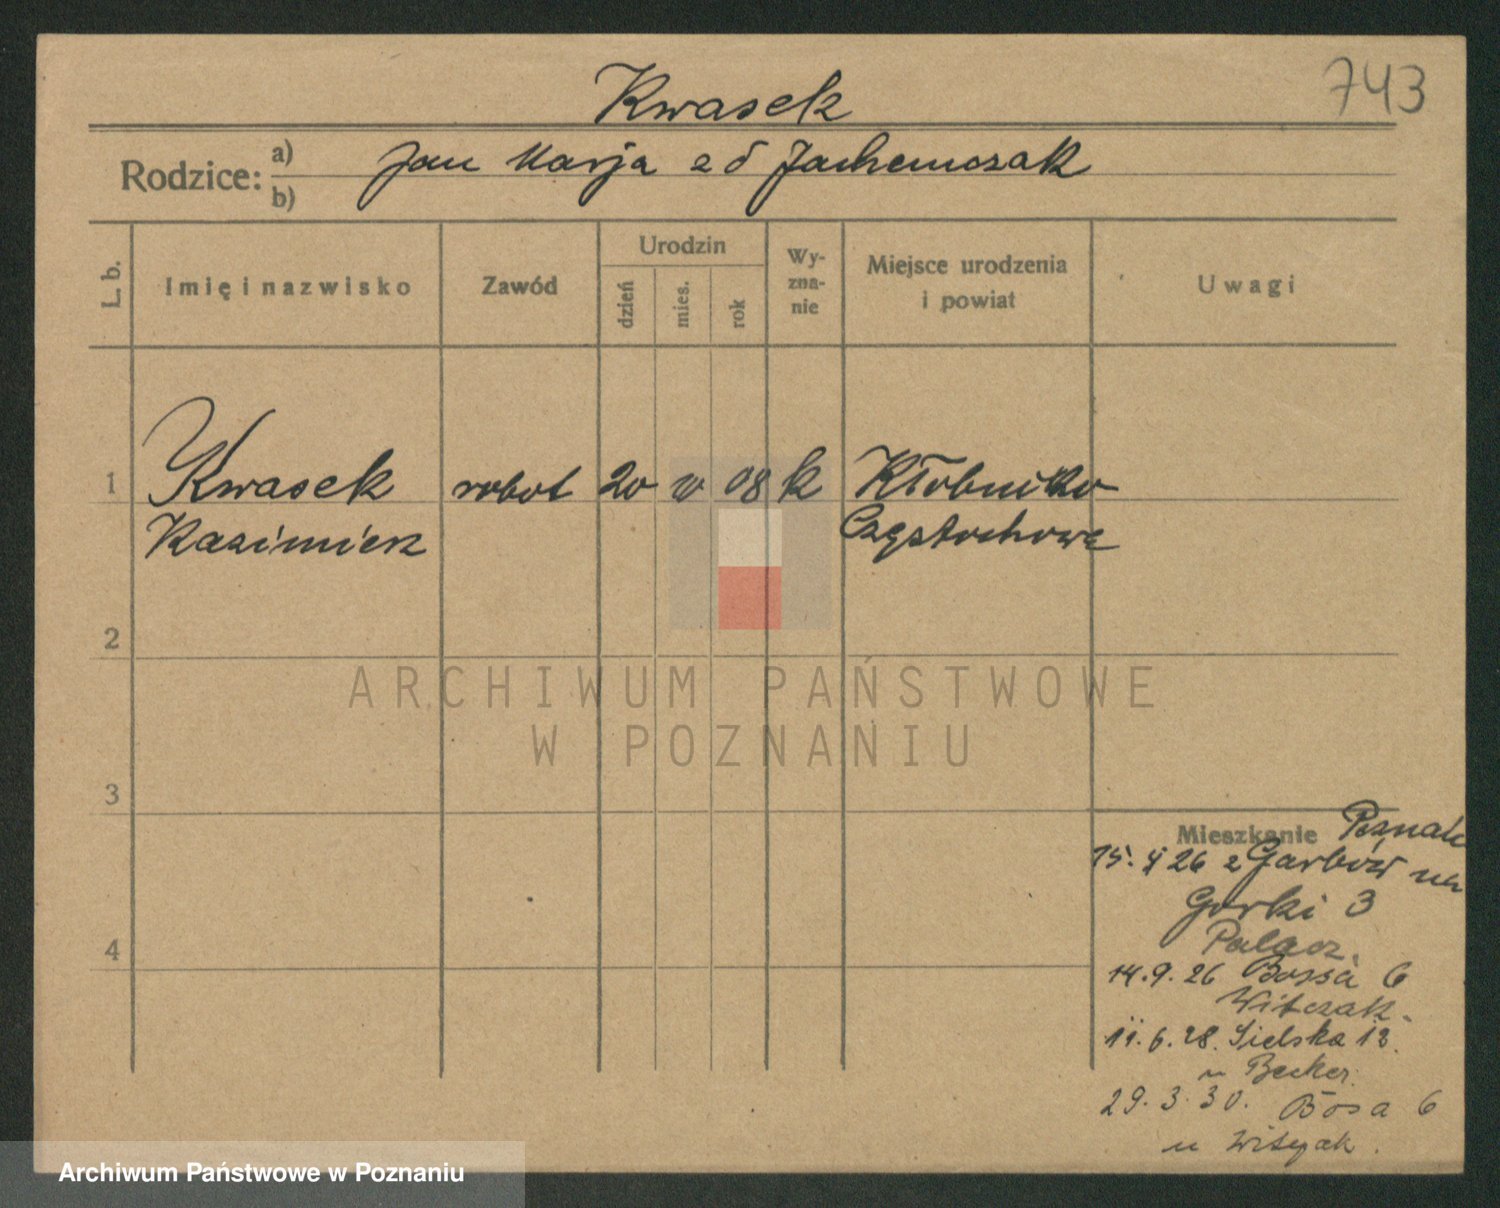 Kwasek
743
Rodzice:
a)
b)
Jan Marja z d Jachemczak
L. b.
Imię i nazwisko
Zawód
Urodzin
dzień
mies.
rok
Wy-
zna-
nie
Miejsce urodzenia
i powiat
Uwagi
1
Kwasek
Kazimierz
robot
20
08
k
Częstochowa
2
3
4
Mieszkanie
26 z Garbów
Gorki 3
Palacz.
14.9.26 Bossa 6
Witczak.
11.6.28. Sielska 12.
u Becker.
29.3.30. Bosa 6
u
ARCHIWUM PAŃSTWOWE
W POZNANIU
Archiwum Państwowe w Poznaniu